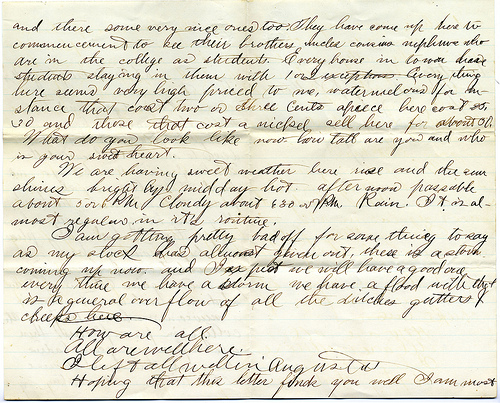 and there some very nice ones too. They have come up here to
commencement to see their brothers, uncles cousins nephews who
are in the college as students. Every house in town have
students staying in them with 1 or 2 exceptions. Every thing
here seems very high priced to me, watermelons for in-
stance that cost two or three cents apiece here cost 25,
30 and those that cost a nickel sell here for about 50.
What do you look like now how tall are you and who
is your sweet heart.
We are having sweet weather here rise and the sun
shines bright by midday hot. afternoon passable
about 3 or 4 P.M. cloudy about 6 30 P.M. Rain. It is al-
most regular in it's routine.
I am getting pretty bad off for some thing to say
as my stock has almost given out, there is a storm
coming up now. and I expect we will have a good one
every time we have a storm we have a flood with that
is a general overflow of all the ditches gutters &
creeks here.
How are all.
All are well here.
I left all well in Augusta
Hoping that this letter finds you well I am most